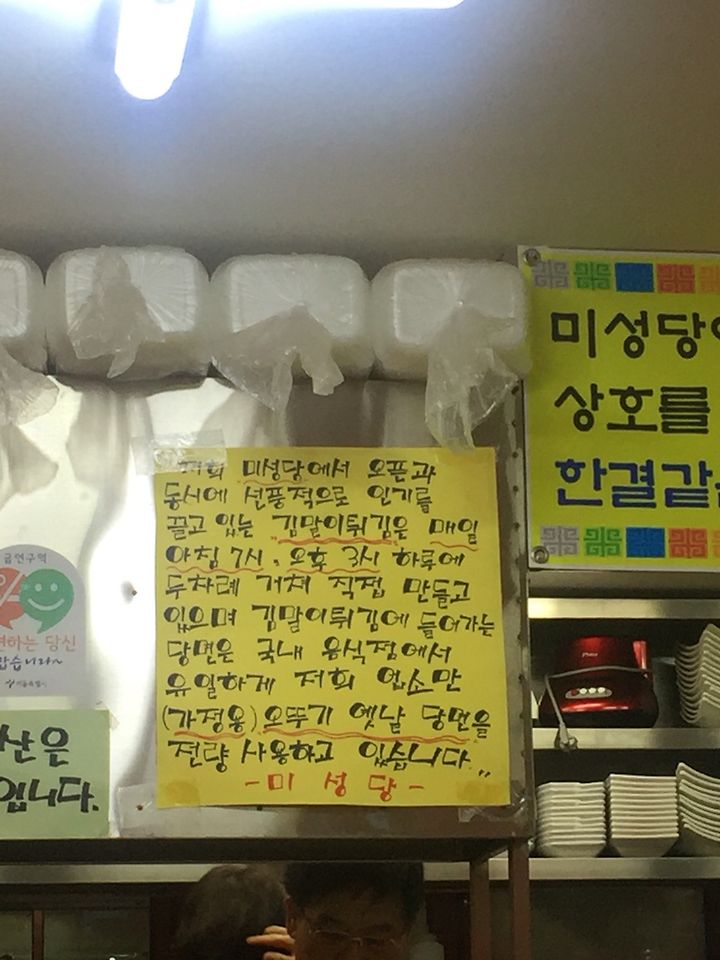 미성당
상호를
한결같
저희 미성당에서 오픈과
동시에 선풍적으로 인기를
끌고 있는 김말이튀김은 매일
아침 7시, 오후 3시 하루에
두차례 거쳐 직접 만들고
있으며 김말이튀김에 들어가는
당면은 국내 음식점에서
유일하게 저희 업소만
(가정용) 오뚜기 옛날 당면을
전량 사용하고 있습니다..
- 미 성 당 -
금연구역
하는 당신
습니다~
서울특별시
산은
입니다.